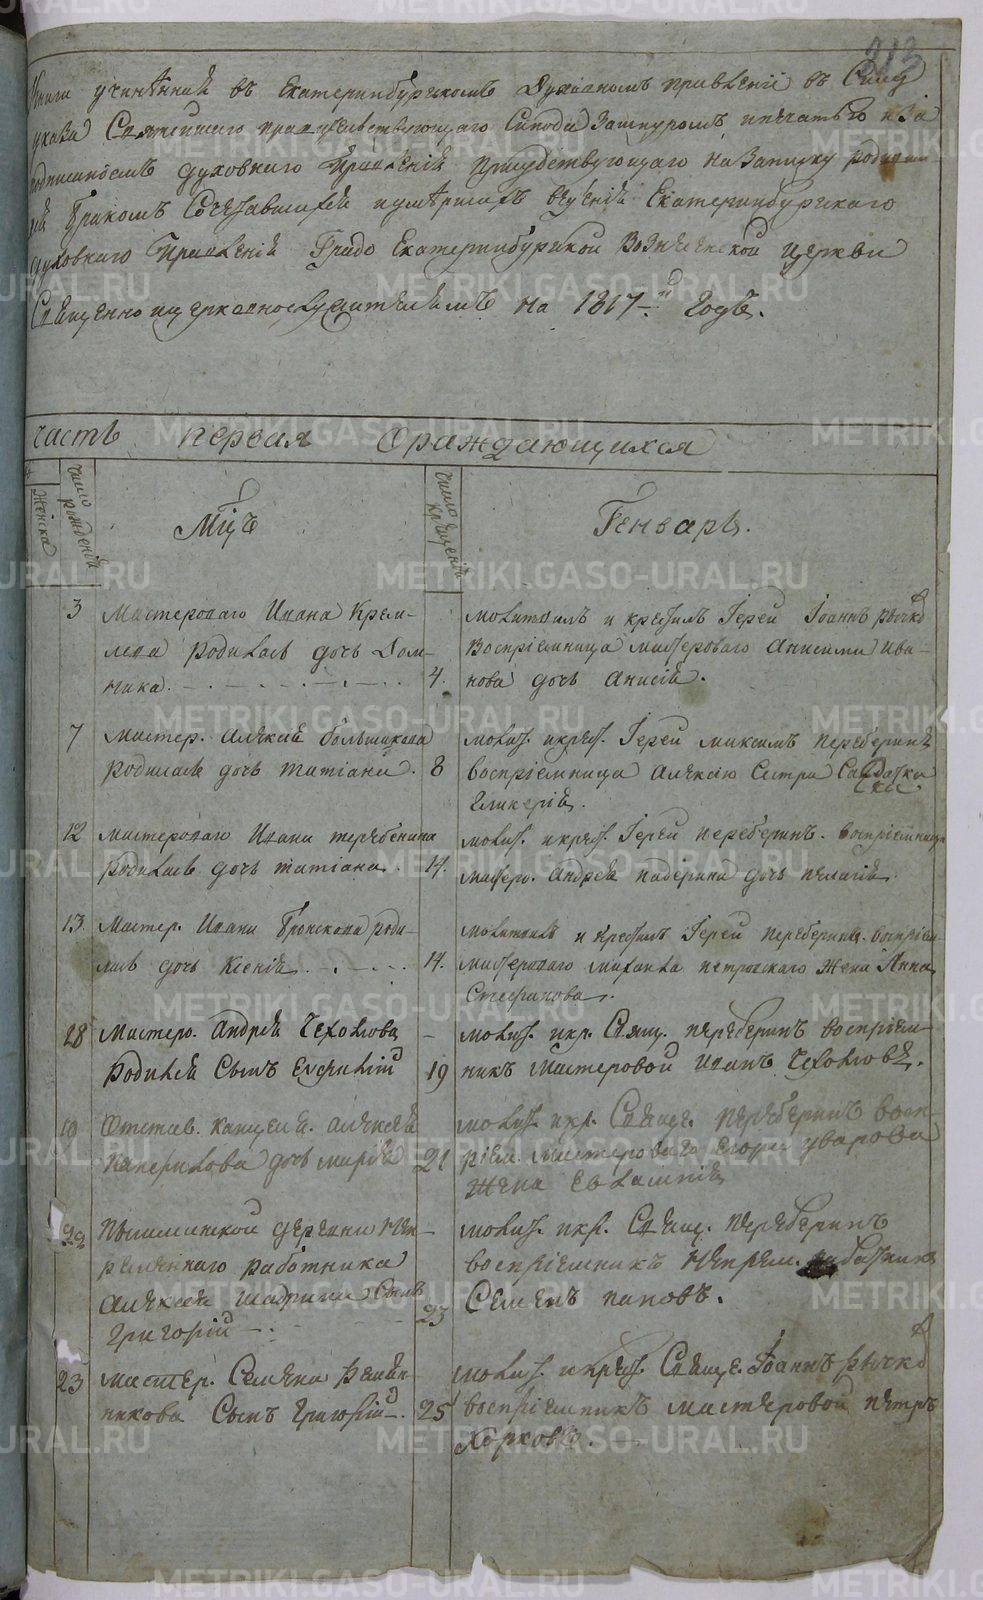 213
Книга учиненная въ Екатеринбургскомъ Духовномъ правленіи въ Силу
указа Святейшаго правительствующаго Синода Зашнуромъ ипечатью иЗа
подписаніемъ духовнаго Правленія Присудствующаго на Записку
бракомъ Сочетавшихся иумершихъ Екатеринбургскаго
духовнаго Правленія Градо Екатеринбургской Вознесенской церкви
Священно ицерковнослужителямъ на 1817-й Годъ.
часть первая Ораждающихся
женска
число рожденія
Мцъ
число крещенія
Генварь.
3 Мастероваго Ивана Крем-
лева родилась дочь Дом-
ника. 4.
молитвилъ и крестилъ Іерей Іоаннъ Рычко
Воспріемница мастероваго Анисима Ива-
нова дочь Анисія.
7 мастер. Алексія большакова
родилась дочь татіана. 8
молит. икрест. Іерей максимъ переберинъ
воспріемница Алексію Сестра Салдатка
Гликерія.
12 мастероваго Ивана теребенина
родилась дочь татіана. 14.
молит. икрест. Іерей переберинъ. воспріемница
мастеро. Андрея падерина дочь пелагія.
13 Мастер. Ивана Бронскова роди-
лась дочь Ксенія. 14.
молитвилъ и крестилъ Іерей переберинъ. воспріем
мастероваго михаила петровскаго жена Анна
Стефанова.
18 Мастеро. Андрея Чехомова
родился Сынъ Евфимій 19
молит. икр. Свящ. переберинъ воспріем-
никъ мастеровой иванъ Чехомовъ.
19 Отстав. канцеля. алексея
дочь марія 21
молит. икр. Свяще. переберинъ восп-
ріем. мастероваго Егора уварова
жена Евлампія
22 Пышминской деревни неп-
ременнаго работника
Алексея Шадрина Сынъ
Григорій 23
молит. икр. Свящ. переберинъ
воспріемникъ непрем. работникъ
Семенъ паповъ.
23 мастер. Семена
никова Сынъ Григорій 25
молит. икрест. Свяще. Іоаннъ рычко
воспріемникъ мастеровой петръ
Харковъ.
METRIKI.GASO-URAL.RU